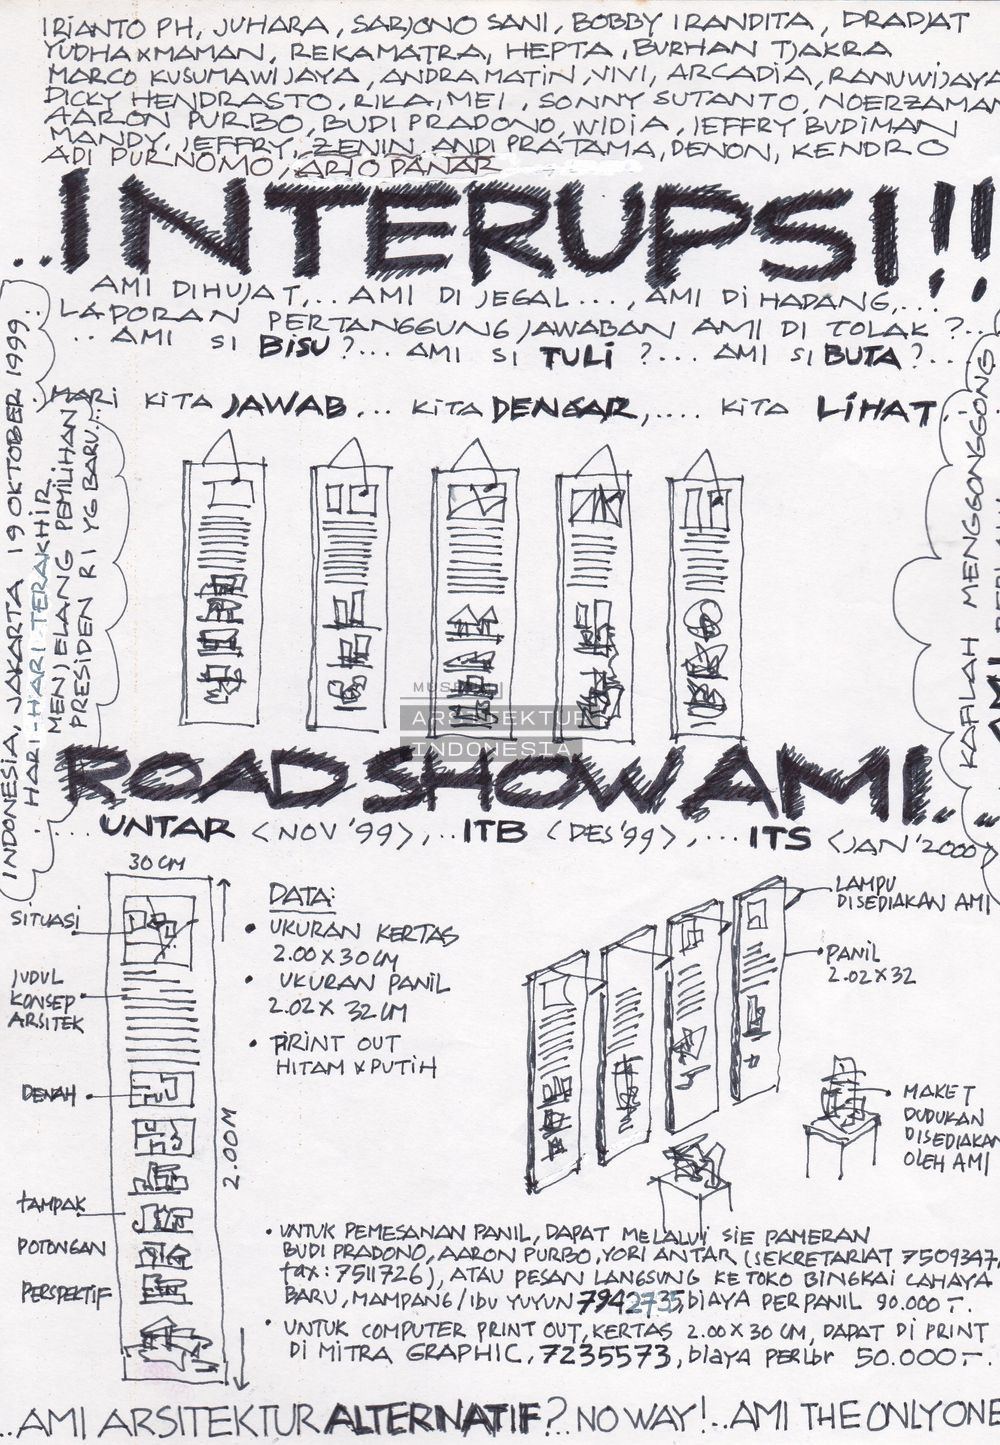 IRIANTO PH, JUHARA, SARJONO SANI, BOBBY IRANDITA, DRADJAT
YUDHA x MAMAN, REKAMATRA, HEPTA, BURHAN TJAKRA
MARCO KUSUMAWIJAYA, ANDRA MATIN, VIVI, ARCADIA, RANUWIJAYA
DICKY HENDRASTO, RIKA, MEI, SONNY SUTANTO, NOERZAMAN
AARON PURBO, BUDI PRADONO, WIDIA, JEFFRY BUDIMAN
MANDY, JEFFRY, ZENIN, ANDI PRATAMA, DENON, KENDRO
ADI PURNOMO, ARIO PANAR
..INTERUPSI!!
AMI DIHUJAT,.. AMI DI JEGAL...., AMI DI HADANG,...
LAPORAN PERTANGGUNG JAWABAN AMI DI TOLAK?...
..AMI SI BISU?... AMI SI TULI?.... AMI SI BUTA?...
MARI KITA JAWAB,.. KITA DENGAR,.... KITA LIHAT,..
INDONESIA, JAKARTA 19 OKTOBER 1999..
HARI-HARI TERAKHIR
MENJELANG PEMILIHAN
PRESIDEN RI YG BARU...
KAFILAH MENGGONGGONG
MUSEUM
ARSITEKTUR
INDONESIA
ROAD SHOW AMI...
....UNTAR <NOV '99>,..ITB <DES '99>,...ITS <JAN '2000>
30 CM
SITUASI
JUDUL
KONSEP
ARSITEK
DENAH
TAMPAK
POTONGAN
PERSPEKTIF
2.00M
DATA:
• UKURAN KERTAS
2.00 X 30 CM
• UKURAN PANIL
2.02 X 32 CM
• PRINT OUT
HITAM x PUTIH
LAMPU
DISEDIAKAN AMI
PANIL
2.02 X 32
MAKET
DUDUKAN
DISEDIAKAN
OLEH AMI
• UNTUK PEMESANAN PANIL, DAPAT MELALUI SIE PAMERAN
BUDI PRADONO, AARON PURBO, YORI ANTAR (SEKRETARIAT 7509347,
fax: 7511726), ATAU PESAN LANGSUNG KE TOKO BINGKAI CAHAYA
BARU, MAMPANG/IBU YUYUN 7942735, BIAYA PER PANIL 90.000,-.
• UNTUK COMPUTER PRINT OUT, KERTAS 2.00 X 30 CM, DAPAT DI PRINT
DI MITRA GRAPHIC, 7235573, BIAYA PERLBR 50.000,-.
..AMI ARSITEKTUR ALTERNATIF?..NO WAY!..AMI THE ONLY ONE